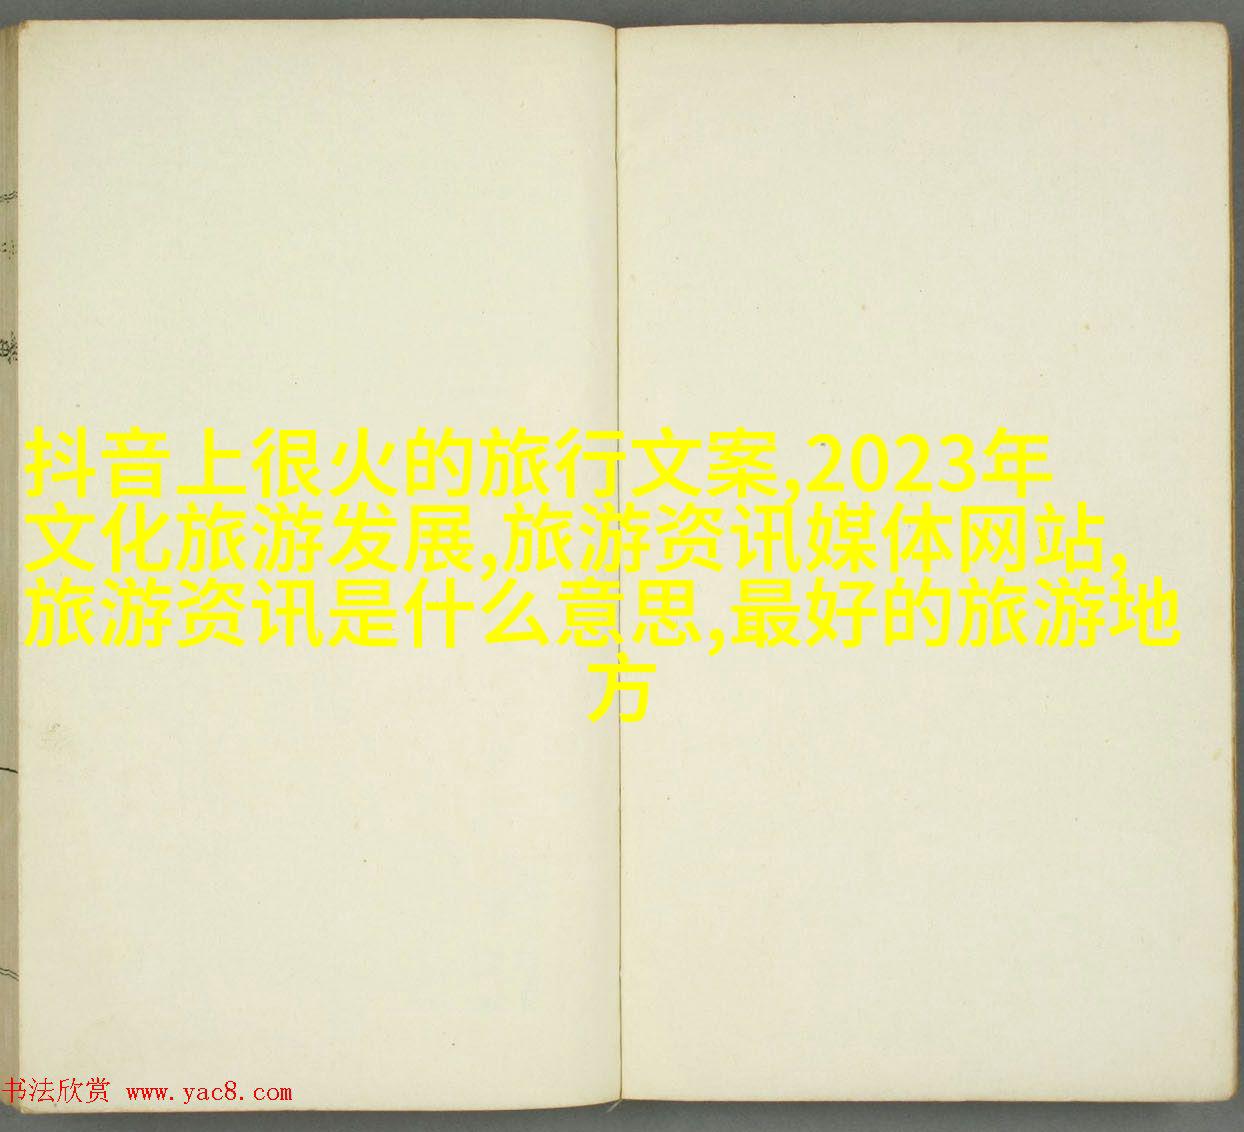 抖音上很火的旅行文案,2023年
文化旅游发展,旅游资讯媒体网站,
旅游资讯是什么意思,最好的旅游地
方
书法欣赏 www.yac8.com